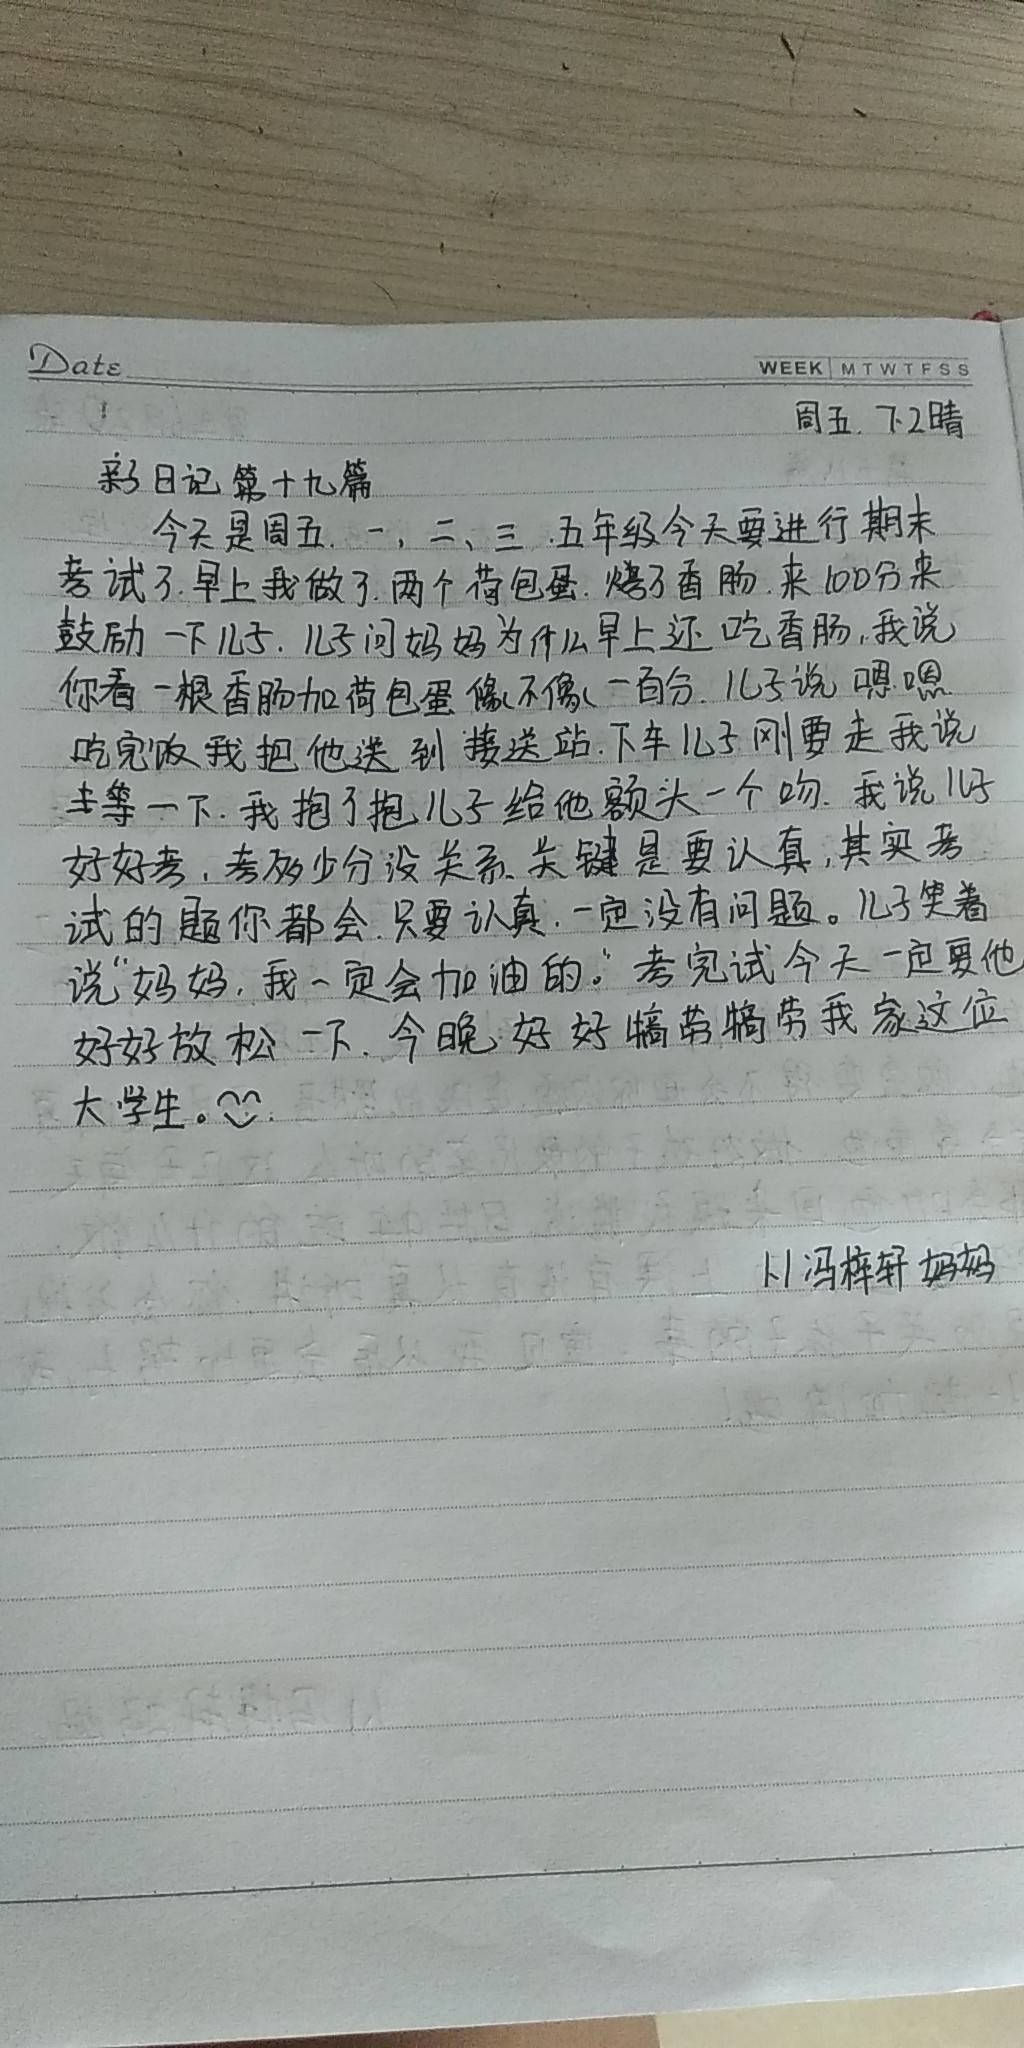 Date
WEEK M T W T F S S
周五. 7.2晴
新日记第十九篇
今天是周五. 一、二、三.五年级今天要进行期末
考试了.早上我做了.两个荷包蛋.烤了香肠.来100分来
鼓励一下儿子.儿子问妈妈为什么早上还吃香肠,我说
你看一根香肠加荷包蛋像不像一百分.儿子说嗯.嗯.
吃完饭我把他送到接送站.下车儿子刚要走我说
等一下.我抱了抱儿子给他额头一个吻.我说儿子
好好考,考多少分没关系.关键是要认真,其实考
试的题你都会.只要认真.一定没有问题。儿子笑着
说“妈妈,我一定会加油的。”考完试今天一定要他
好好放松一下.今晚.好好犒劳犒劳我家这位
大学生。
1.1冯梓轩妈妈